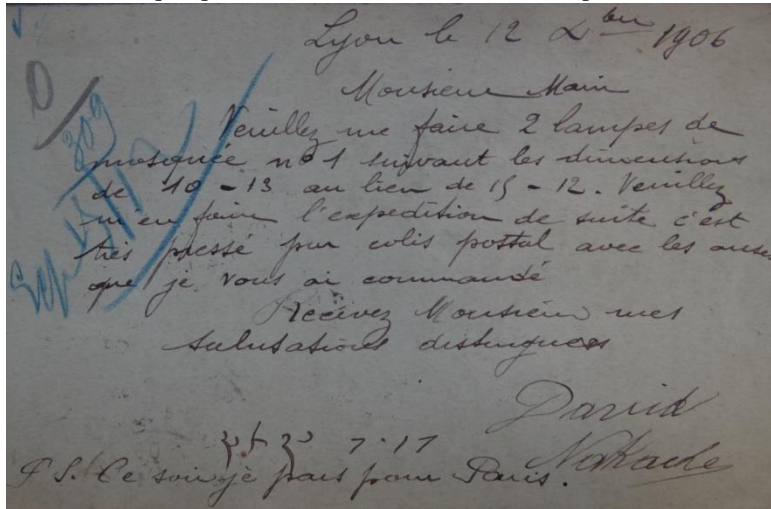 Lyon le 12 Xbre 1906
Monsieur Main
Veuillez me faire 2 lampes de
mosquée nº 1 suivant les dimensions
de 10 - 13 au lieu de 15 - 12. Veuillez
m'en faire l'expedition de suite c'est
très pressé par colis postal avec les anses
que je vous ai commandé
Recevez Monsieur mes
salutations distinguées
David
Nakache
P S. Ce soir je pars pour Paris.
309